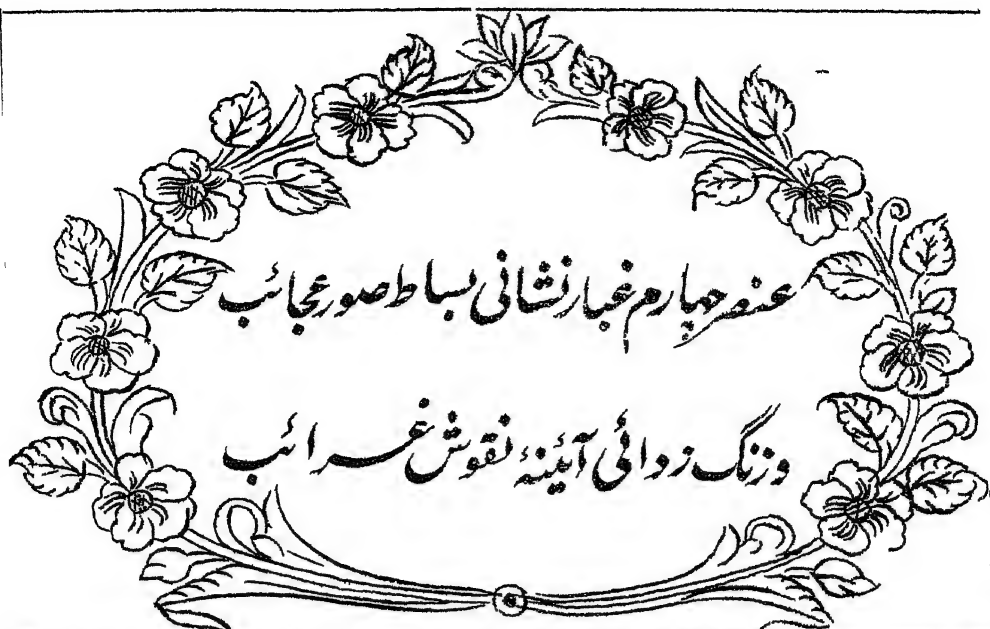 عنصر چهارم غبار نشانی بساط صور عجائب
وزنگ زدائی آئینهٔ نقوش غرائب